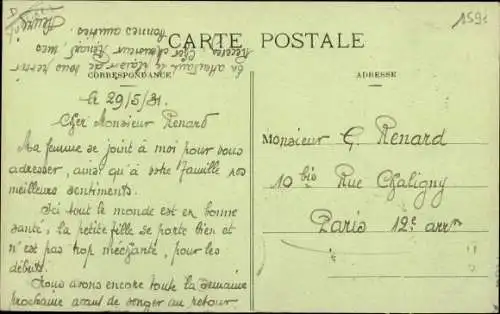 159
CARTE POSTALE
CORRESPONDANCE
ADRESSE
le 29/5/31.
Cher Monsieur Renard
Ma femme se joint à moi pour vous
adresser, ainsi qu'à votre famille nos
meilleurs sentiments.
Ici tout le monde est en bonne
santé, la petite fille se porte bien et
n'est pas trop méchante, pour les
débuts.
Nous avons encore toute la semaine
prochaine avant de songer au retour
En attendant le plaisir de vous
Recevez Cher Monsieur Renard mes
bonnes amitiés
Monsieur G. Renard
10 bis Rue Chaligny
Paris 12e arr